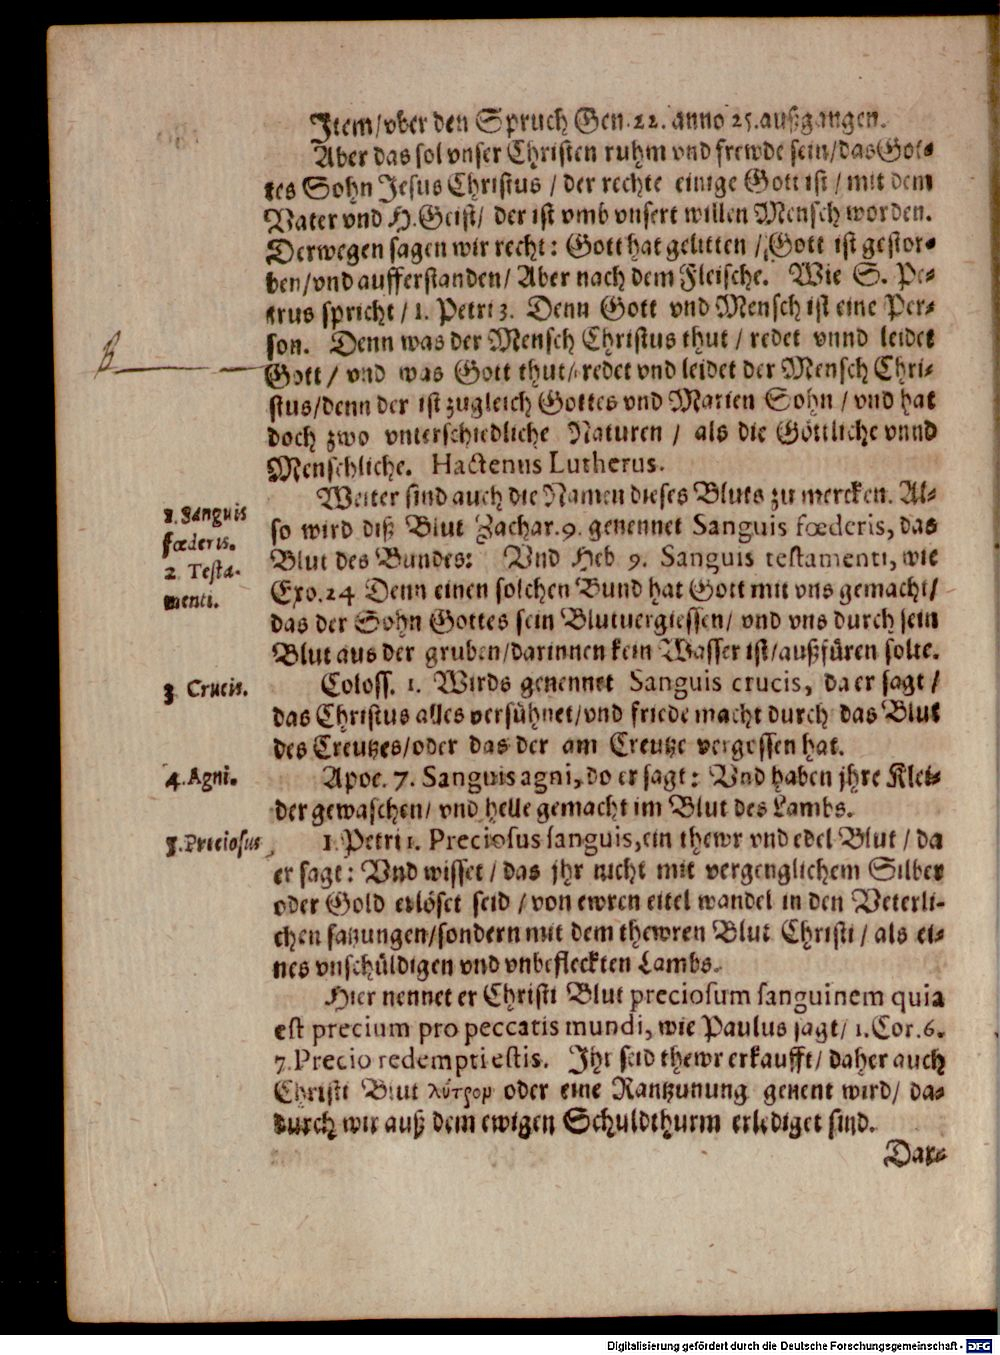 Item/vber den Spruch Gen. 22. anno 25. außgangen.
Aber das sol vnser Christen ruhm vnd frewde sein/das Got-
tes Sohn Jesus Christus / der rechte einige Gott ist / mit dem
Vater vnd H. Geist/ der ist vmb vnsert willen Mensch worden.
Derwegen sagen wir recht: Gott hat gelitten / Gott ist gestor-
ben/vnd aufferstanden/ Aber nach dem Fleische. Wie S. Pe-
trus spricht / 1. Petri 3. Denn Gott vnd Mensch ist eine Per-
son. Denn was der Mensch Christus thut / redet vnnd leidet
Gott / vnd was Gott thut/ redet vnd leidet der Mensch Chri-
stus/denn der ist zugleich Gottes vnd Marien Sohn / vnd hat
doch zwo vnterschiedliche Naturen / als die Göttliche vnnd
Menschliche. Hactenus Lutherus.
Weiter sind auch die Namen dieses Bluts zu mercken. Al-
1. Sanguis
fœderis.
so wird diß Blut Zachar. 9. genennet Sanguis fœderis, das
Blut des Bundes: Vnd Heb 9. Sanguis testamenti, wie
2. Testa-
menti.
Exo. 24 Denn einen solchen Bund hat Gott mit vns gemacht/
das der Sohn Gottes sein Blutuergiessen/ vnd vns durch sein
Blut aus der gruben/darinnen kein Wasser ist/außfüren solte.
3. Crucis.
Coloss. 1. Wirds genennet Sanguis crucis, da er sagt /
das Christus alles versühnet/vnd friede macht durch das Blut
des Creutzes/oder das der am Creutze vergossen hat.
4. Agni.
Apoc. 7. Sanguis agni, do er sagt: Vnd haben jhre Klei-
der gewaschen/ vnd helle gemacht im Blut des Lambs.
5. Preciosus
1. Petri 1. Preciosus sanguis, ein thewr vnd edel Blut / da
er sagt: Vnd wisset / das jhr nicht mit vergenglichem Silber
oder Gold erlöset seid / von ewren eitel wandel in den Veterli-
chen satzungen/sondern mit dem thewren Blut Christi / als ei-
nes vnschüldigen vnd vnbefleckten Lambs.
Hier nennet er Christi Blut preciosum sanguinem quia
est precium pro peccatis mundi, wie Paulus sagt/ 1. Cor. 6.
7. Precio redempti estis. Ihr seid thewr erkaufft/ daher auch
Christi Blut λύτρον oder eine Rantzunung genent wird/ da-
durch wir auß dem ewigen Schuldthurm erlediget sind.
Dar-
Digitalisierung gefördert durch die Deutsche Forschungsgemeinschaft - DFG